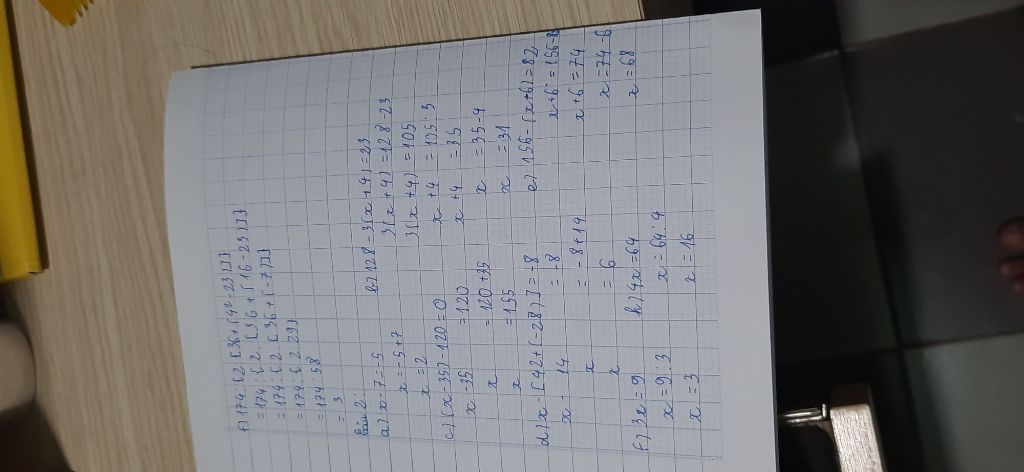 f) 174:{2.[36+(4²-23)]}
= 174:{2.[36+(16-23)]}
= 174:{2.[36+(-7)]}
= 174:{2.29}
= 174:58
= 3
Bài 2:
a) x-7=-5
x=-5+7
x=2
b) 128-3(x+4)=23
3(x+4)=128-23
3(x+4)=105
x+4=105:3
x+4=35
x=35-4
x=31
c) (x-35)-120=0
x-35=120
x=120+35
x=155
d) x-[42+(-28)]=-8
x-14=-8
x=-8+14
x=6
e) 156-(x+6)=82
x+6=156-8
x+6=74
x=74-6
x=68
f) 3x=9
x=9:3
x=3
h) 4x=64
x=64:4
x=16